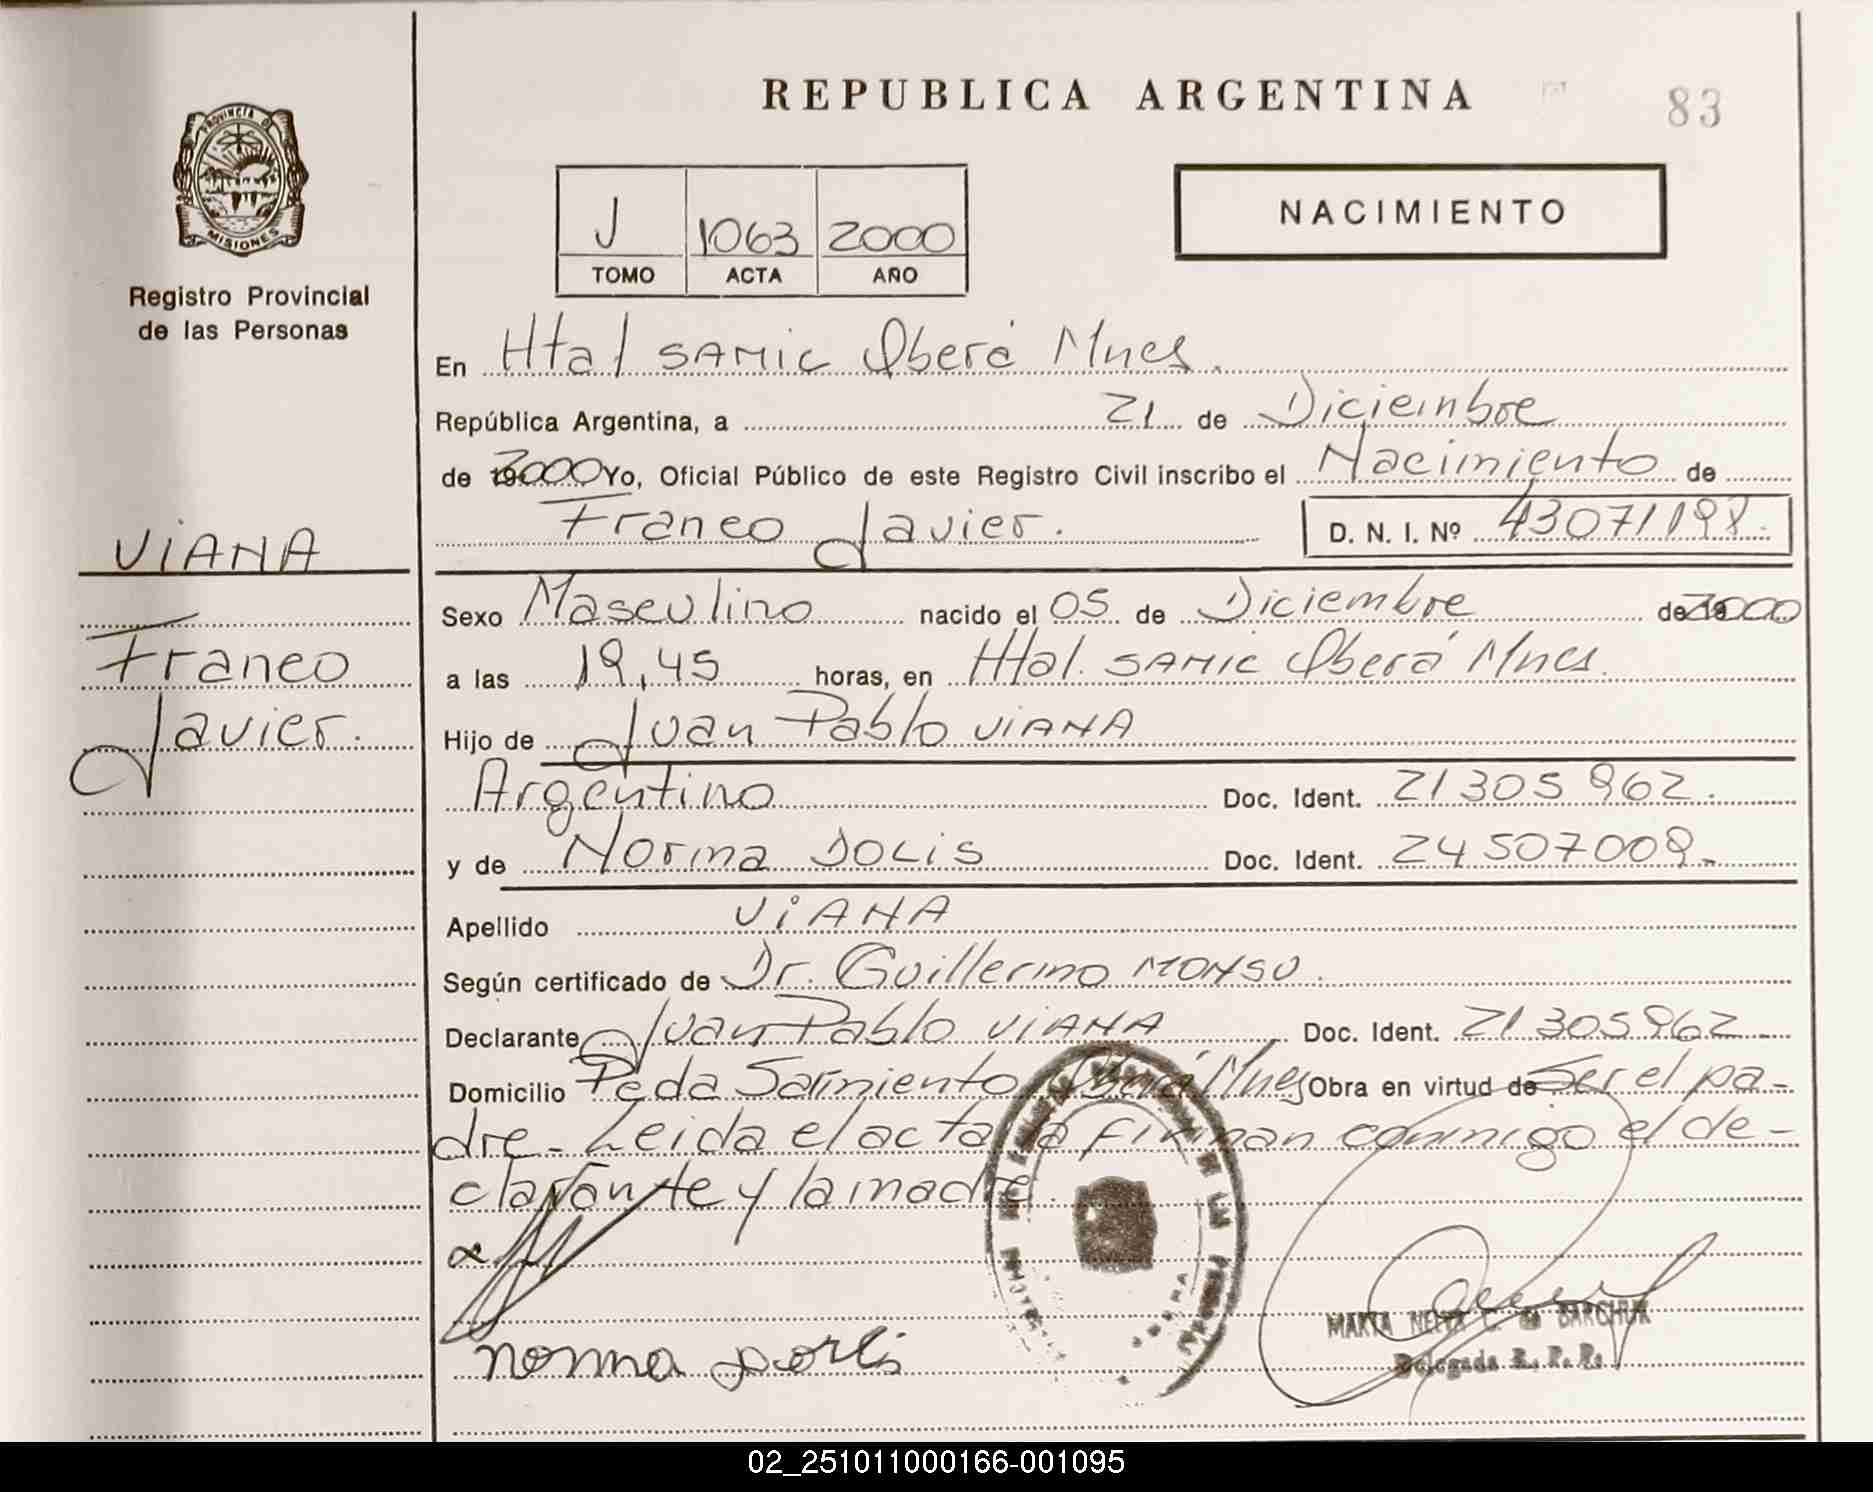 REPUBLICA ARGENTINA
83
PROVINCIA DE
MISIONES
Registro Provincial
de las Personas
J 1063 2000
TOMO ACTA AÑO
NACIMIENTO
En Htal SAMIC Oberá Mnes.
República Argentina, a 21 de Diciembre
de 2000 Yo, Oficial Público de este Registro Civil inscribo el Nacimiento de
Franco Javier. D. N. I. Nº 43071198.
VIANA
Franco
Javier.
Sexo Masculino nacido el 05 de Diciembre de 2000
a las 19,45 horas, en Htal. SAMIC Oberá Mnes.
Hijo de Juan Pablo VIANA
Argentino Doc. Ident. 21305962.
y de Norma DOLIS Doc. Ident. 24507009.-
Apellido VIANA
Según certificado de Dr. Guillermo MONSU.
Declarante Juan Pablo VIANA Doc. Ident. 21305962.-
Domicilio Peda Sarmiento Oberá Mnes Obra en virtud de Ser el pa-
dre.- Leida el acta la firman conmigo el de-
clarante y la madre.
MARIA NELYA C. de BARCHUK
Delegada R. P. P.
02_251011000166-001095